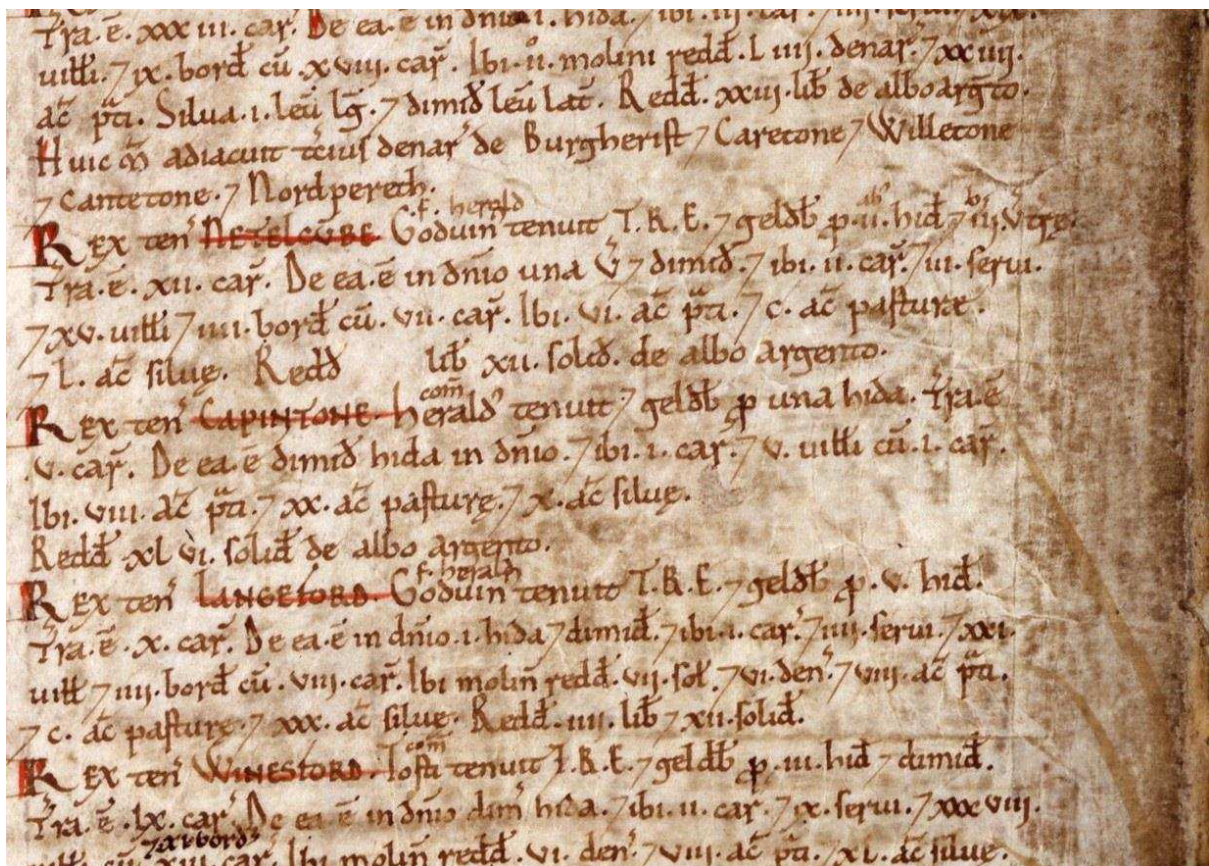 Tra. ē. xxxiii. car̃. De ea. ē in dñio. i. hida. ⁊ ibi. iii. car̃. ⁊ iiii. serui. ⁊ xix.
uilli. ⁊ ix. bord̃ cū. xviii. car̃. Ibi. ii. molini redd̃. L iiii. denar̃. ⁊ xx iiii.
ac̃ pti. Silua. i. leū lg̃. ⁊ dimid̃ leū lat̃. Redd̃. xxiii. lib̃ de albo arg̃to.
Huic m̃ adiacuit t̃cius denar̃ de Burgherist ⁊ Caretone ⁊ Willetone
⁊ Cantetone. ⁊ Nordpereth.
.f. herald
REX ten̄ NETELCUBE Goduin tenuit T.R.E. ⁊ geldb̃ ꝑ. ii. hid̃. ⁊ iii. v̄ træ.
Tra. ē. xii. car̃. De ea. ē in dñio una v̄ ⁊ dimid̃. ⁊ ibi. ii. car̃. ⁊ iii. serui.
⁊ xv. uilli ⁊ iiii. bord̃ cū. vii. car̃. Ibi. vi. ac̃ pti. ⁊ c. ac̃ pasturæ.
⁊ L. ac̃ siluę. Redd̃ lib̃ xii. solid̃. de albo argento.
com̄
REX ten̄ CAPINTONE. herald̓ tenuit ⁊ geldb̃ ꝑ una hida. Tra. ē
v. car̃. De ea. ē dimid̃ hida in dñio. ⁊ ibi. i. car̃. ⁊ v. uilli cū. i. car̃.
Ibi. viii. ac̃ pti. ⁊ xx. ac̃ pasturę. ⁊ x. ac̃ siluę.
Redd̃ xl vi. solid̃ de albo argento.
.f. herald
REX ten̄ LANGEFORD. Goduin tenuit T.R.E. ⁊ geldb̃ ꝑ. v. hid̃.
Tra. ē. x. car̃. De ea. ē in dñio. i. hida ⁊ dimid̃. ⁊ ibi. i. car̃. ⁊ iiii. serui. ⁊ xxi.
uilli ⁊ iiii. bord̃ cū. viii. car̃. Ibi molin̄ redd̃. vii. sol̃. ⁊ vi. den̄. ⁊ viii. ac̃ pti.
⁊ c. ac̃ pasturę. ⁊ xxx. ac̃ siluę. Redd̃. iiii. lib̃ ⁊ xii. solid̃.
com̄
REX ten̄ WINESFORD. Tosti tenuit T.R.E. ⁊ geldb̃ ꝑ. iii. hid̃ ⁊ dimid̃.
Tra. ē. lx. car̃. De ea ē in dñio dim̄ hida. ⁊ ibi. ii. car̃. ⁊ ix. serui. ⁊ xxxviii.
⁊ xi bord̃
uilli cū. xiii. car̃. Ibi molin̄ redd̃. vi. den̄. ⁊ viii. ac̃ pti. ⁊ xl. ac̃ siluę.